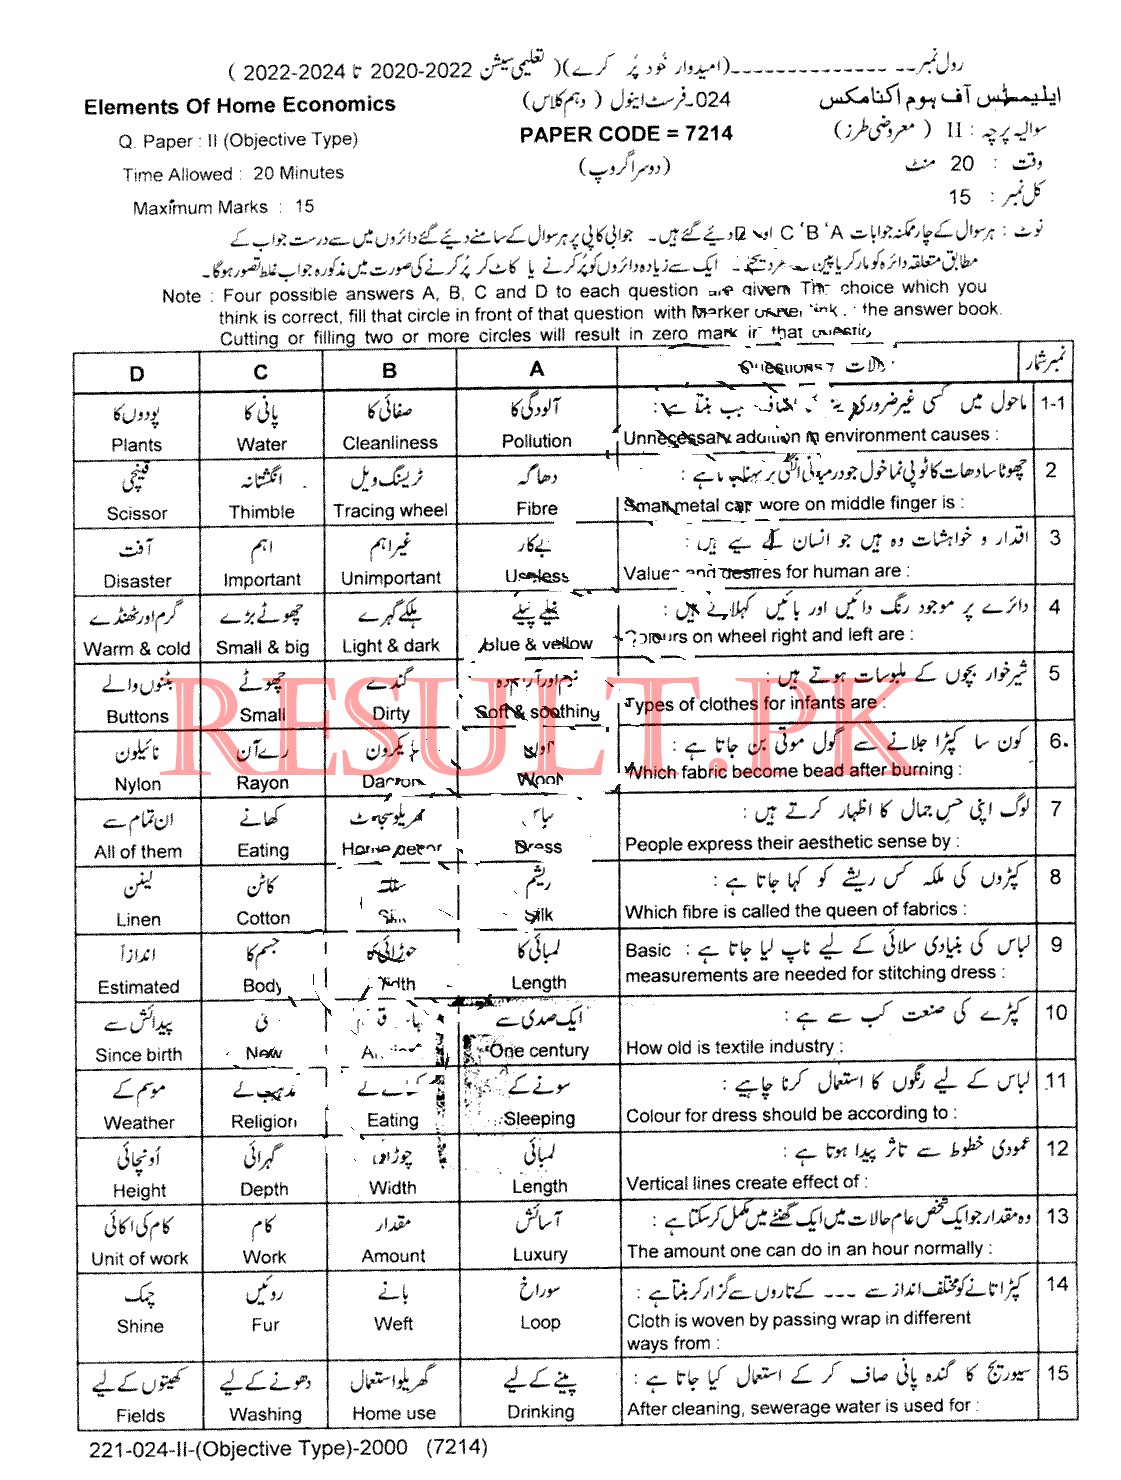 رول نمبر ----------------- (امیدوار خود پُر کرے) ( تعلیمی سیشن 2022-2020 تا 2024-2022 )
ایلیمنٹس آف ہوم اکنامکس 024-فرسٹ اینول ( دہم کلاس) Elements Of Home Economics
سوالیہ پرچہ : II ( معروضی طرز) PAPER CODE = 7214 Q. Paper : II (Objective Type)
وقت : 20 منٹ (دوسرا گروپ) Time Allowed : 20 Minutes
کل نمبر : 15 Maximum Marks : 15
نوٹ : ہر سوال کے چار ممکنہ جوابات A ‘B ‘C اور D دئیے گئے ہیں۔ جوابی کاپی پر ہر سوال کے سامنے دئیے گئے دائروں میں سے درست جواب کے
مطابق متعلقہ دائرہ کو مارکر یا پین سے بھر دیجئے۔ ایک سے زیادہ دائروں کو پُر کرنے یا کاٹ کر پُر کرنے کی صورت میں مذکورہ جواب غلط تصور ہوگا۔
Note : Four possible answers A, B, C and D to each question are given. The choice which you
think is correct, fill that circle in front of that question with Marker or Pen ink in the answer book.
Cutting or filling two or more circles will result in zero mark in that question.
D C B A Questions / سوالات نمبر شمار
1-1 ماحول میں کسی غیر ضروری چیز کا اضافہ سبب بنتا ہے :
پودوں کا پانی کا صفائی کا آلودگی کا
Plants Water Cleanliness Pollution Unnecessary addition in environment causes :
2 چھوٹا سا دھات کا ٹوپی نما خول جو درمیانی انگلی پر پہنا جاتا ہے :
قینچی انگشتانہ ٹریسنگ ویل دھاگہ
Scissor Thimble Tracing wheel Fibre Small metal cap wore on middle finger is :
3 اقدار و خواہشات وہ ہیں جو انسان کے لیے ہیں :
آفت اہم غیر اہم بے کار
Disaster Important Unimportant Useless Values and desires for human are :
4 دائرے پر موجود رنگ دائیں اور بائیں کہلاتے ہیں :
گرم اور ٹھنڈے چھوٹے بڑے ہلکے گہرے نیلے پیلے
Warm & cold Small & big Light & dark blue & yellow Colours on wheel right and left are :
5 شیرخوار بچوں کے ملبوسات ہوتے ہیں :
بٹنوں والے چھوٹے گندے نرم اور آرام دہ
Buttons Small Dirty Soft & soothing Types of clothes for infants are :
6. کون سا کپڑا جلانے سے گول موتی بن جاتا ہے :
نائیلون رے آن ڈیکرون اون
Nylon Rayon Dacron Wool Which fabric become bead after burning :
7 لوگ اپنی حسِ جمال کا اظہار کرتے ہیں :
ان تمام سے کھانے گھریلو سجاوٹ لباس
All of them Eating Home decor Dress People express their aesthetic sense by :
8 کپڑوں کی ملکہ کس ریشے کو کہا جاتا ہے :
لینن کاٹن ریشم
Linen Cotton Silk Which fibre is called the queen of fabrics :
9 لباس کی بنیادی سلائی کے لیے ناپ لیا جاتا ہے : Basic
اندازاً جسم کا چوڑائی کا لمبائی کا
Estimated Body Width Length measurements are needed for stitching dress :
10 کپڑے کی صنعت کب سے ہے :
پیدائش سے نئی ایک صدی سے
Since birth New One century How old is textile industry :
11. لباس کے لیے رنگوں کا استعمال کرنا چاہیے :
موسم کے مذہب کے کھانے کے سونے کے
Weather Religion Eating Sleeping Colour for dress should be according to :
12 عمودی خطوط سے تاثر پیدا ہوتا ہے :
اونچائی گہرائی چوڑائی لمبائی
Height Depth Width Length Vertical lines create effect of :
13 وہ مقدار جو ایک شخص عام حالات میں ایک گھنٹے میں مکمل کر سکتا ہے :
کام کی اکائی کام مقدار آسائش
Unit of work Work Amount Luxury The amount one can do in an hour normally :
14 کپڑا تانے کو مختلف انداز سے ۔۔۔ کے تاروں سے گزار کر بنتا ہے :
چمک روئیں بانے سوراخ
Shine Fur Weft Loop Cloth is woven by passing wrap in different
ways from :
15 سیوریج کا گندہ پانی صاف کر کے استعمال کیا جاتا ہے :
کھیتوں کے لیے دھونے کے لیے گھریلو استعمال پینے کے لیے
Fields Washing Home use Drinking After cleaning, sewerage water is used for :
221-024-II-(Objective Type)-2000 (7214)
RESULT.PK